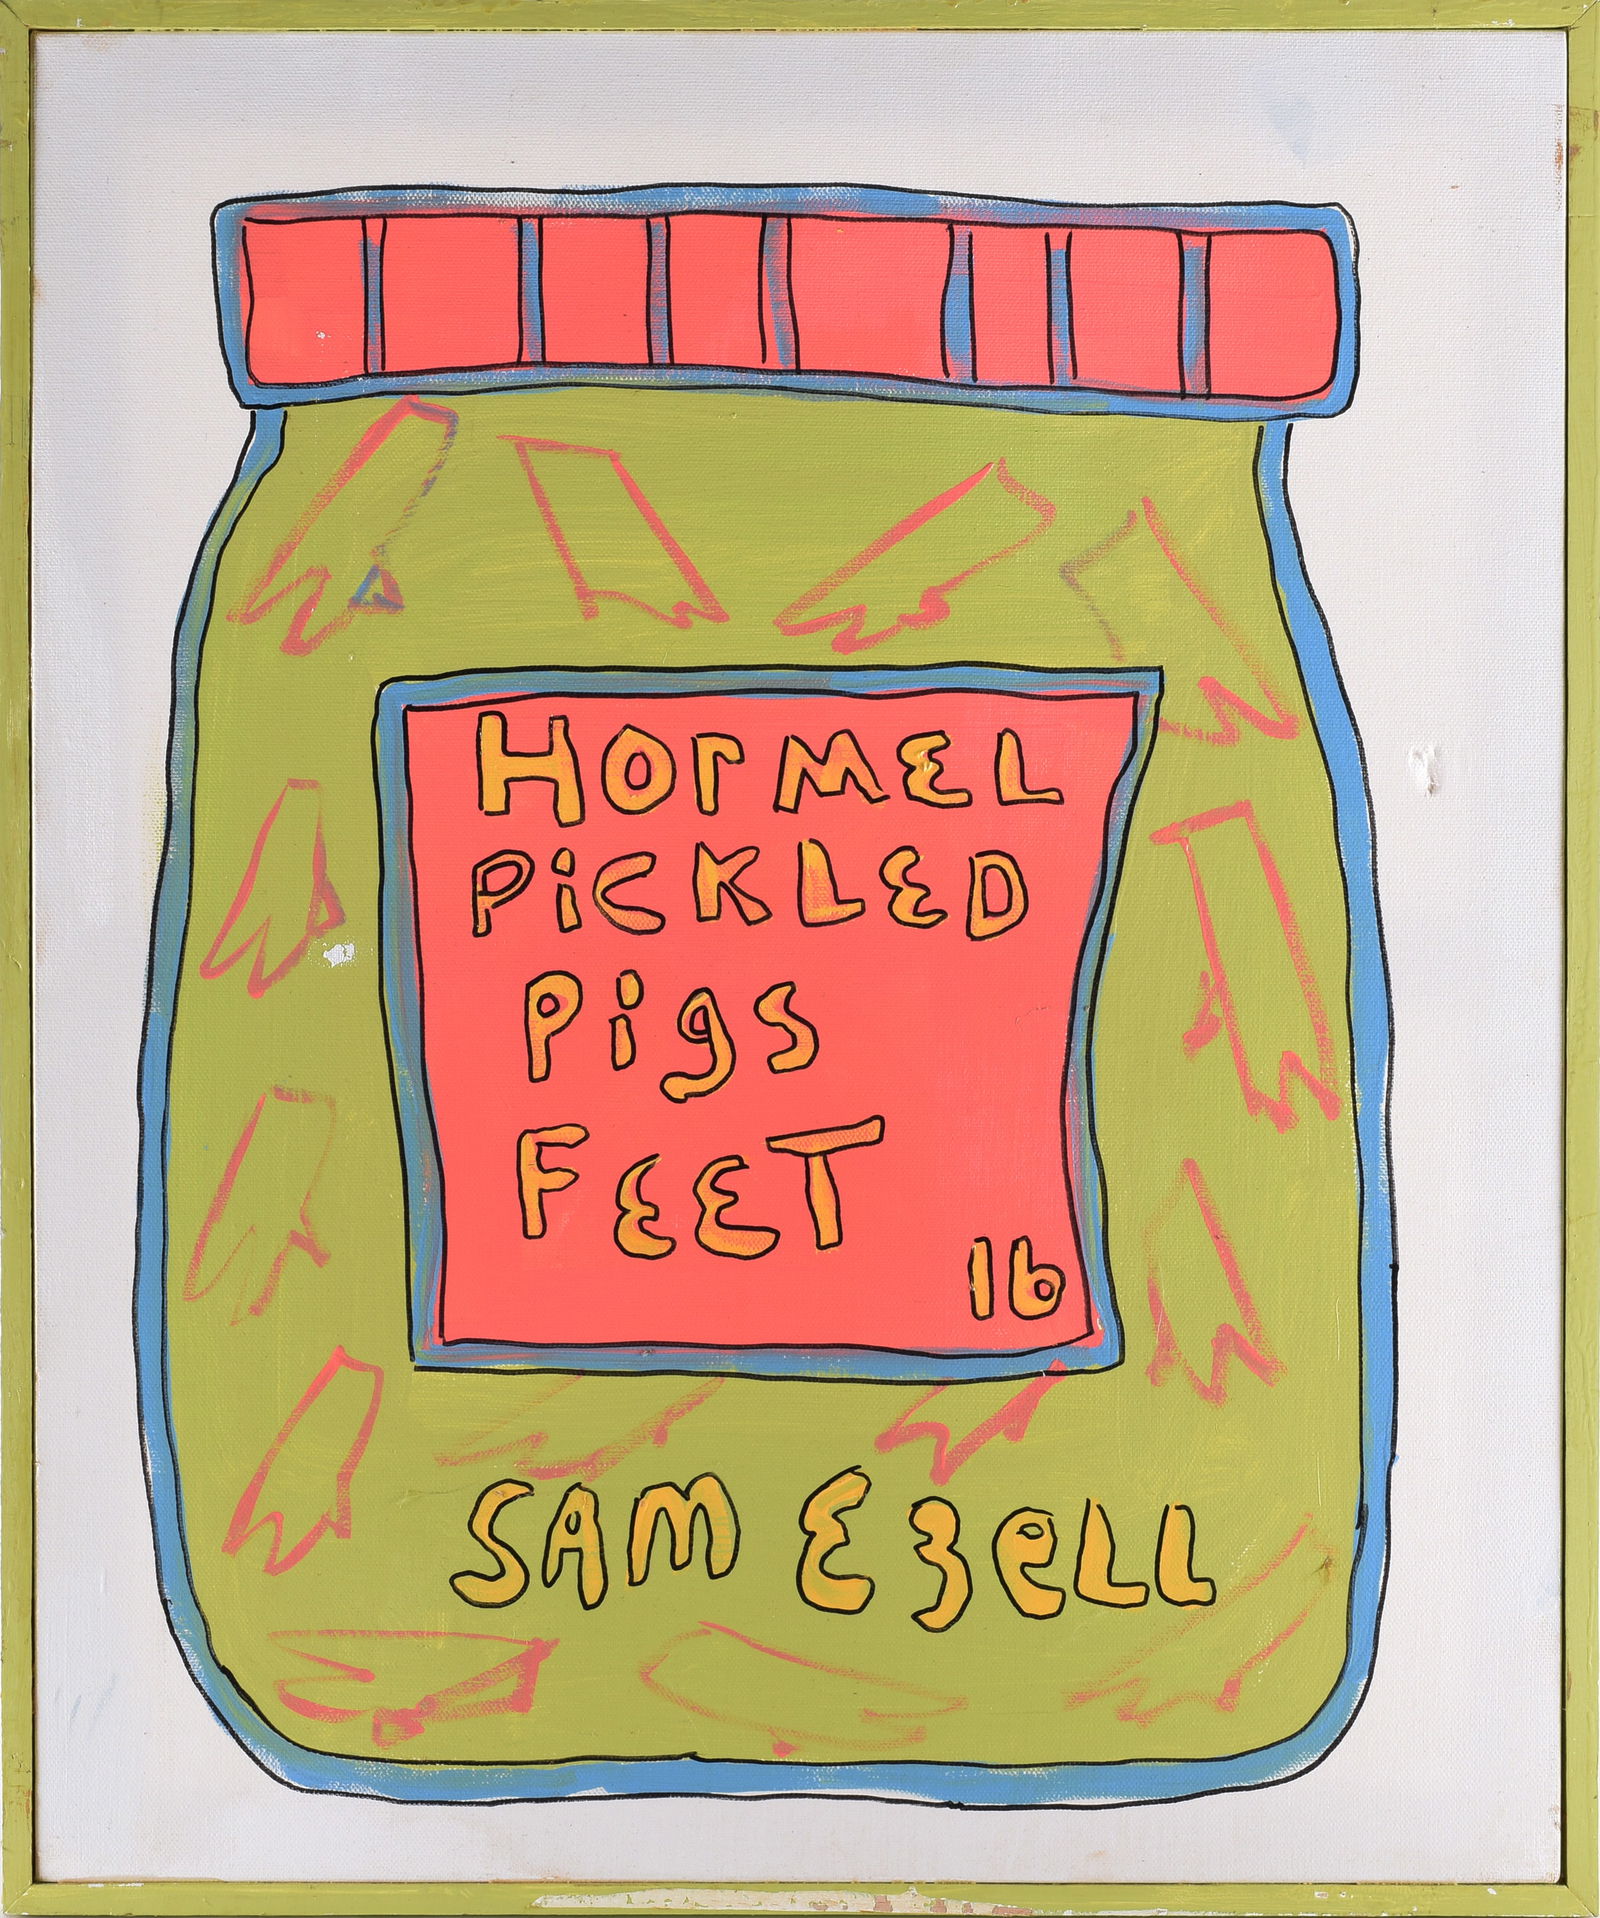 HOrMEL
PiCKLED
Pigs
FEET
16
SAM EzeLL